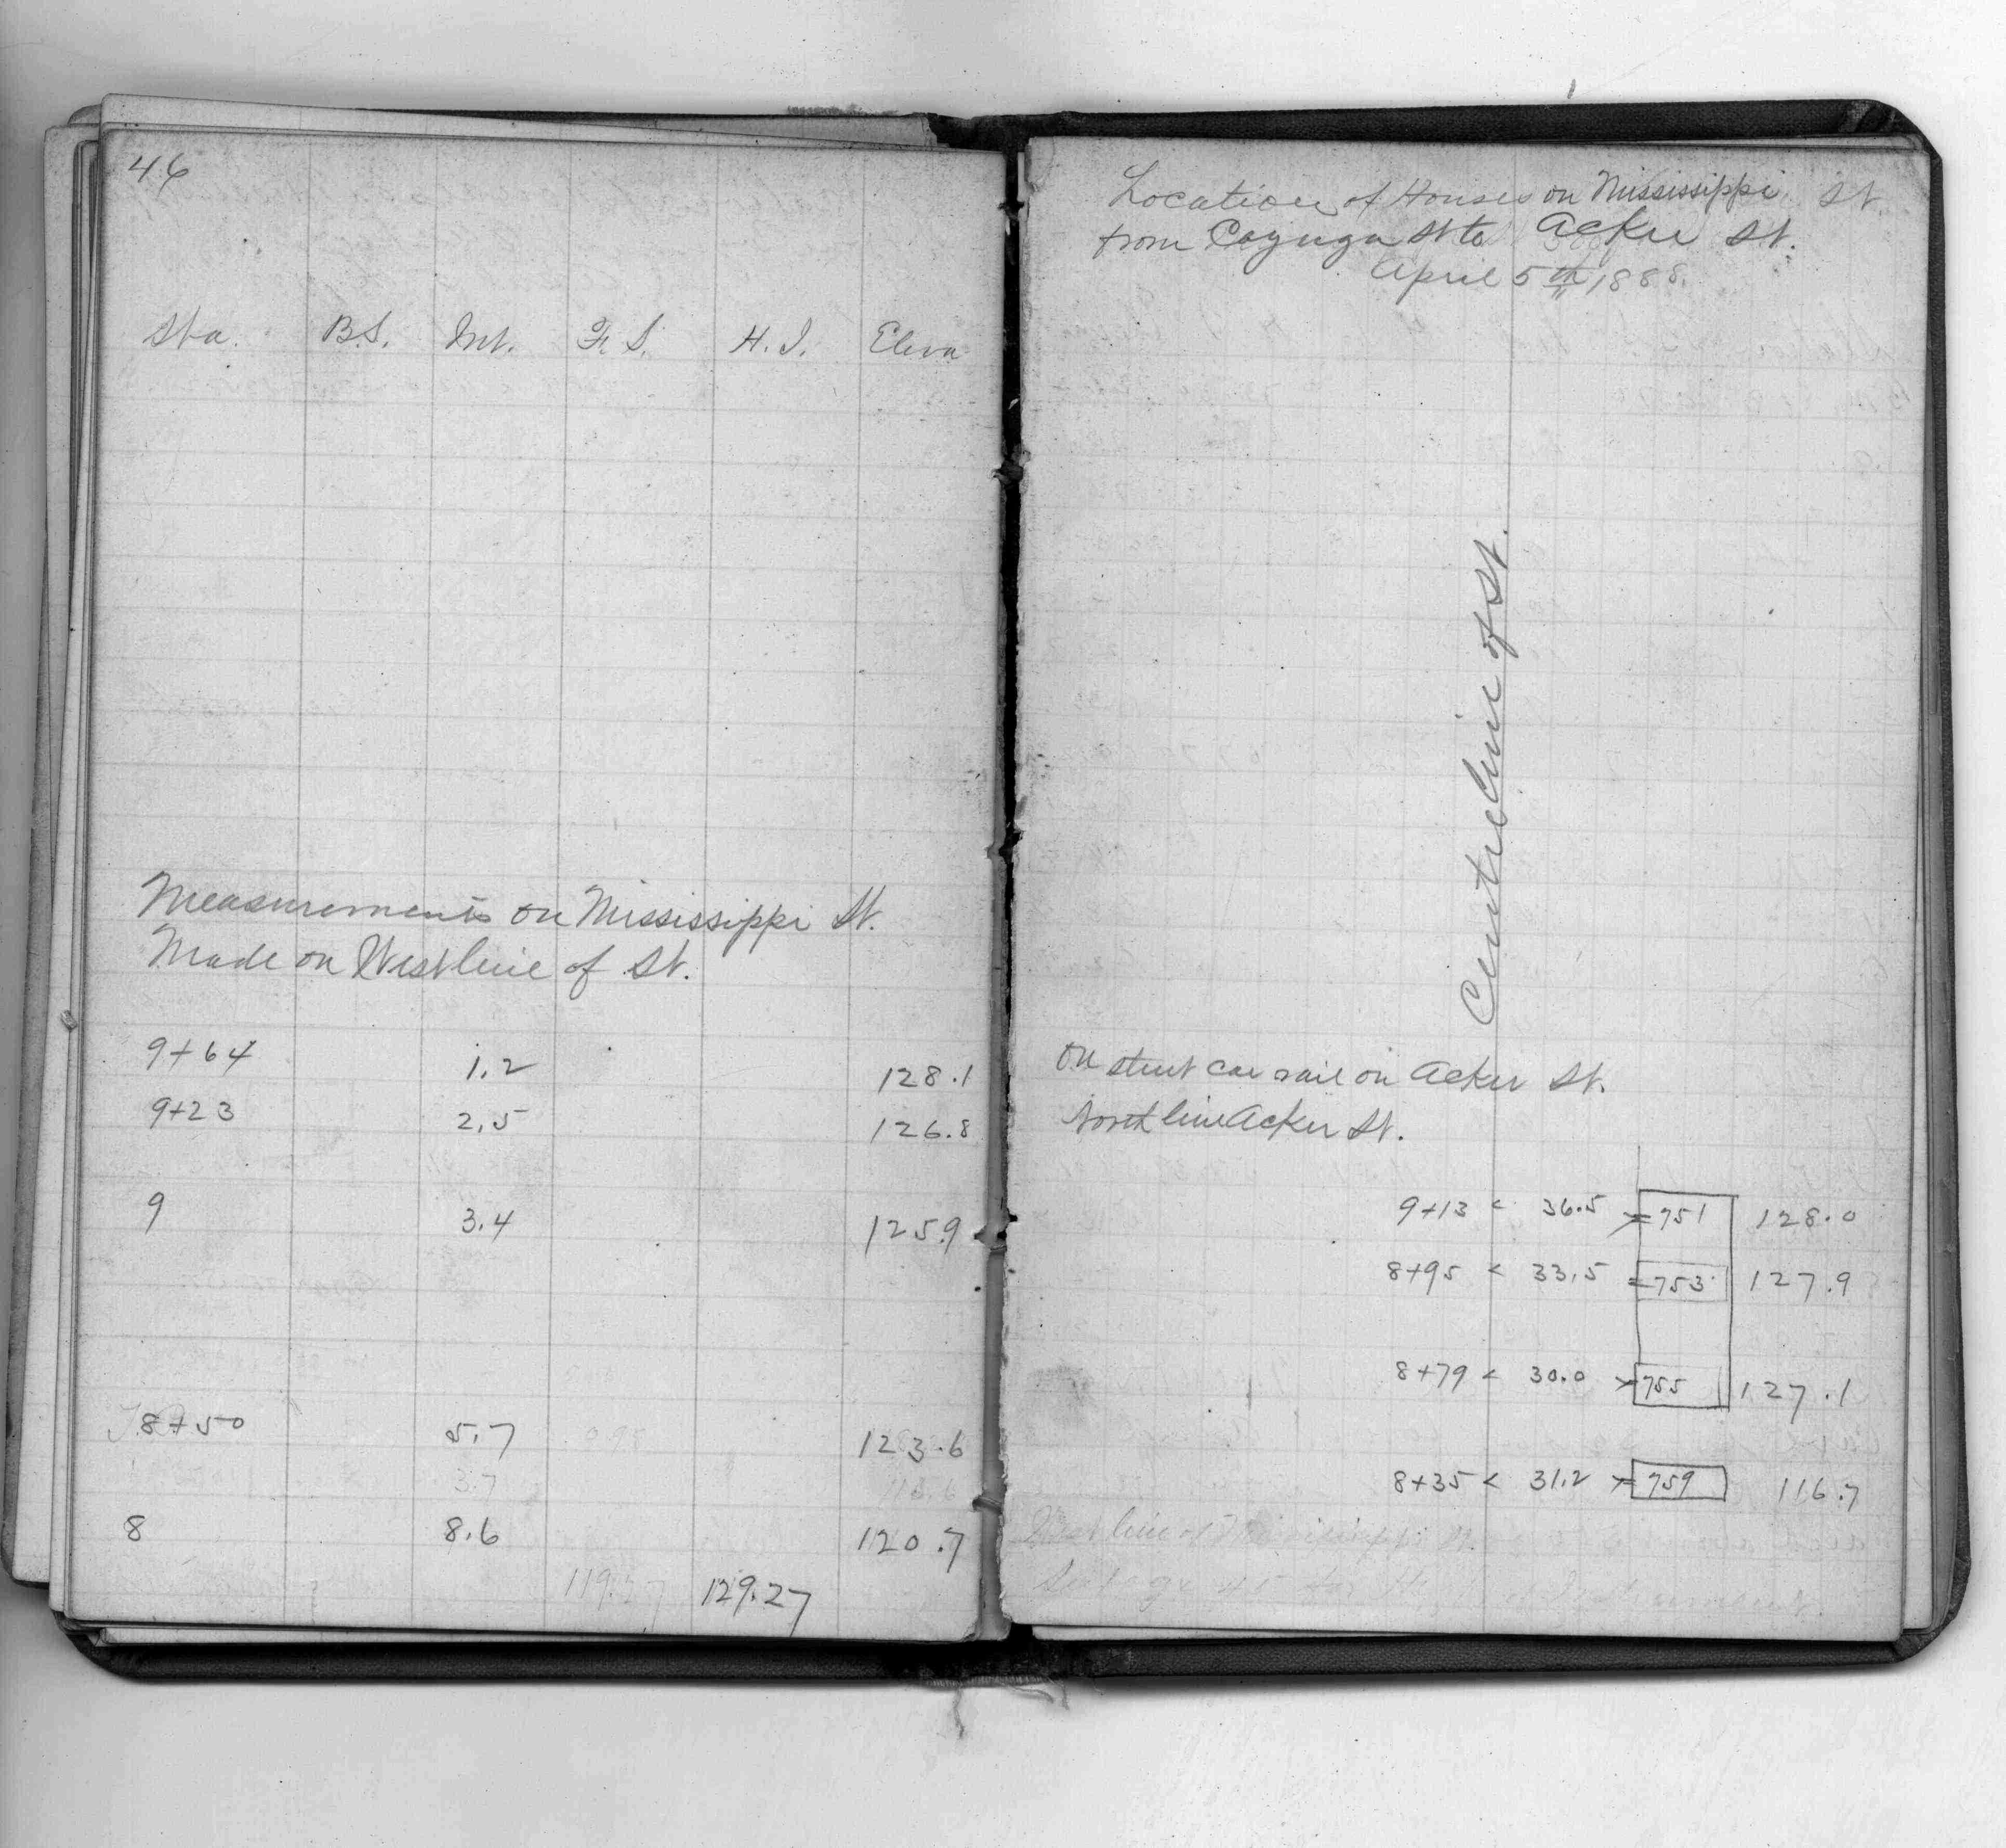 46
Sta. B.S. Int. F.S. H.I. Eleva
Measurements on Mississippi St.
Made on West line of St.
9+64 1.2 128.1
9+23 2.5 126.8
9 3.4 125.9
8+50 5.7 123.6
3.7
8 8.6 120.7
119.27 129.27
Location of Houses on Mississippi St.
from Cayuga St to Acker St.
April 5th 1888.
Centre line of St.
On street car rail on Acker St.
North line Acker St.
9+13 < 36.5 > 751 128.0
8+95 < 33.5 = 753 127.9
8+79 < 30.0 > 755 127.1
8+35 < 31.2 > 759 116.7
West line of Mississippi St.